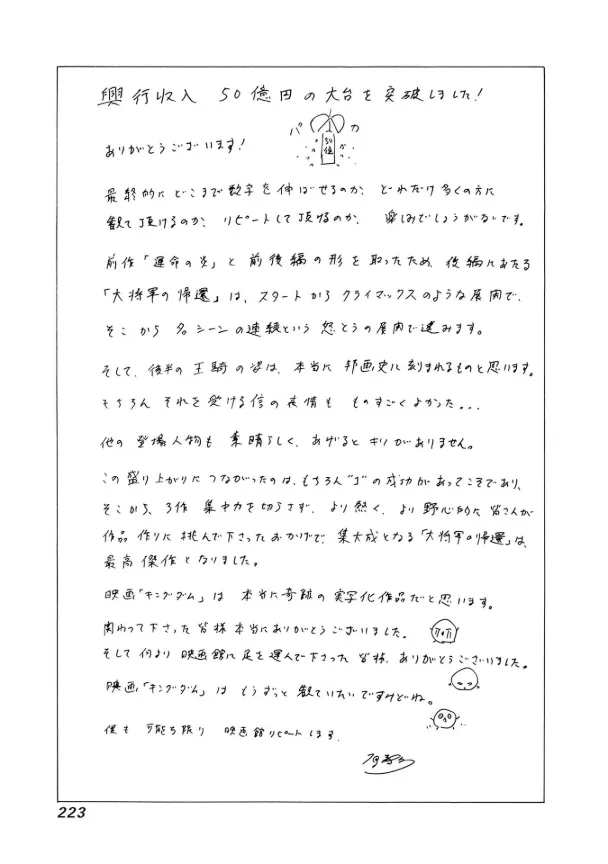 興行収入 50億円の大台を突破しました!
パ カ
50億
ありがとうございます!
最終的にどこまで数字を伸ばせるのか、どれだけ多くの方に
観て頂けるのか、リピートして頂けるのか、楽しみでしょうがないです。
前作「運命の炎」と前後編の形を取ったため、後編にあたる
「大将軍の帰還」は、スタートからクライマックスのような展開で、
そこから名シーンの連続という怒とうの展開で進みます。
そして、後半の王騎の姿は、本当に邦画史に刻まれるものと思います。
もちろんそれを受ける信の表情も ものすごくよかった...
他の登場人物も素晴らしく、あげるとキリがありません。
この盛り上がりにつながったのは、もちろん"1"の成功があってこそであり、
そこから、3作 集中力を切らさず、より熱く、より野心的に皆さんが
作品作りに挑んで下さったおかげで、集大成となる「大将軍の帰還」は、
最高傑作となりました。
映画「キングダム」は 本当に奇跡の実写化作品だと思います。
関わって下さった皆様本当にありがとうございました。
そして何より映画館に足を運んで下さった皆様、ありがとうございました。
映画「キングダム」はもうずっと観ていたいですけどね。
僕も可能な限り 映画館リピートします.
223